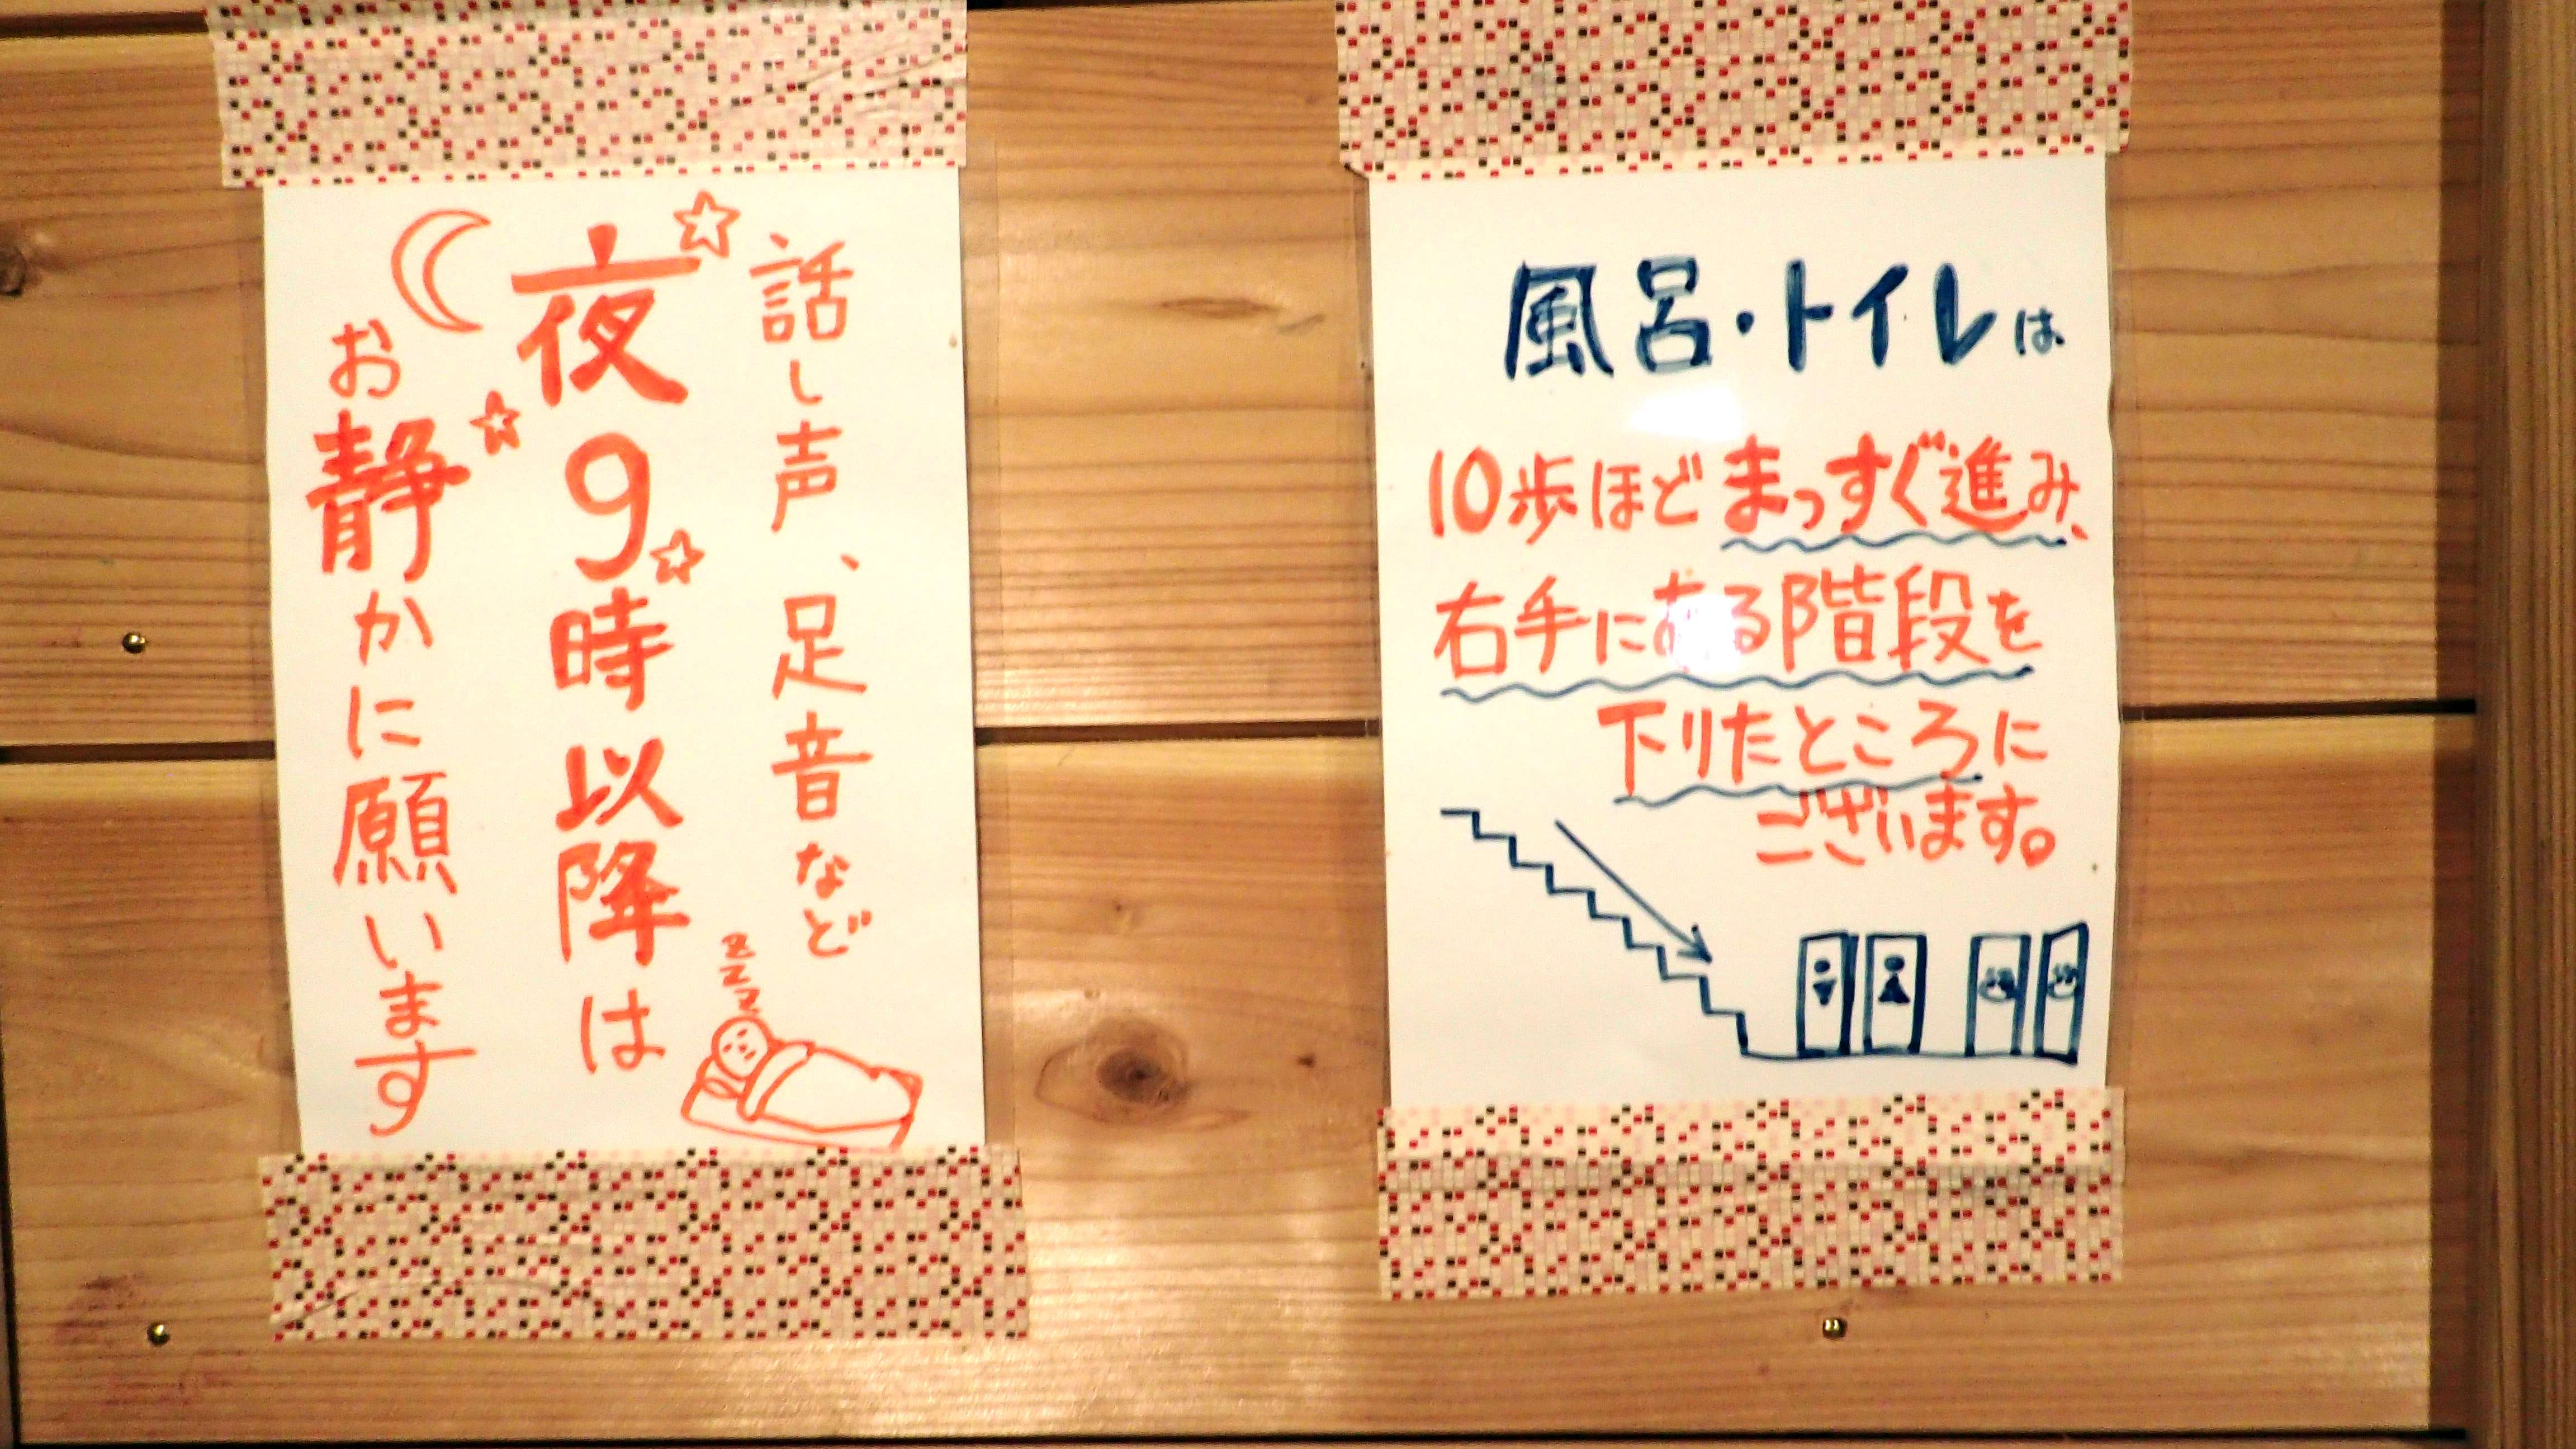 話し声、足音など
夜9時以降は
お静かに願います
zzz
風呂・トイレは
10歩ほどまっすぐ進み、
右手にある階段を
下りたところに
ございます。